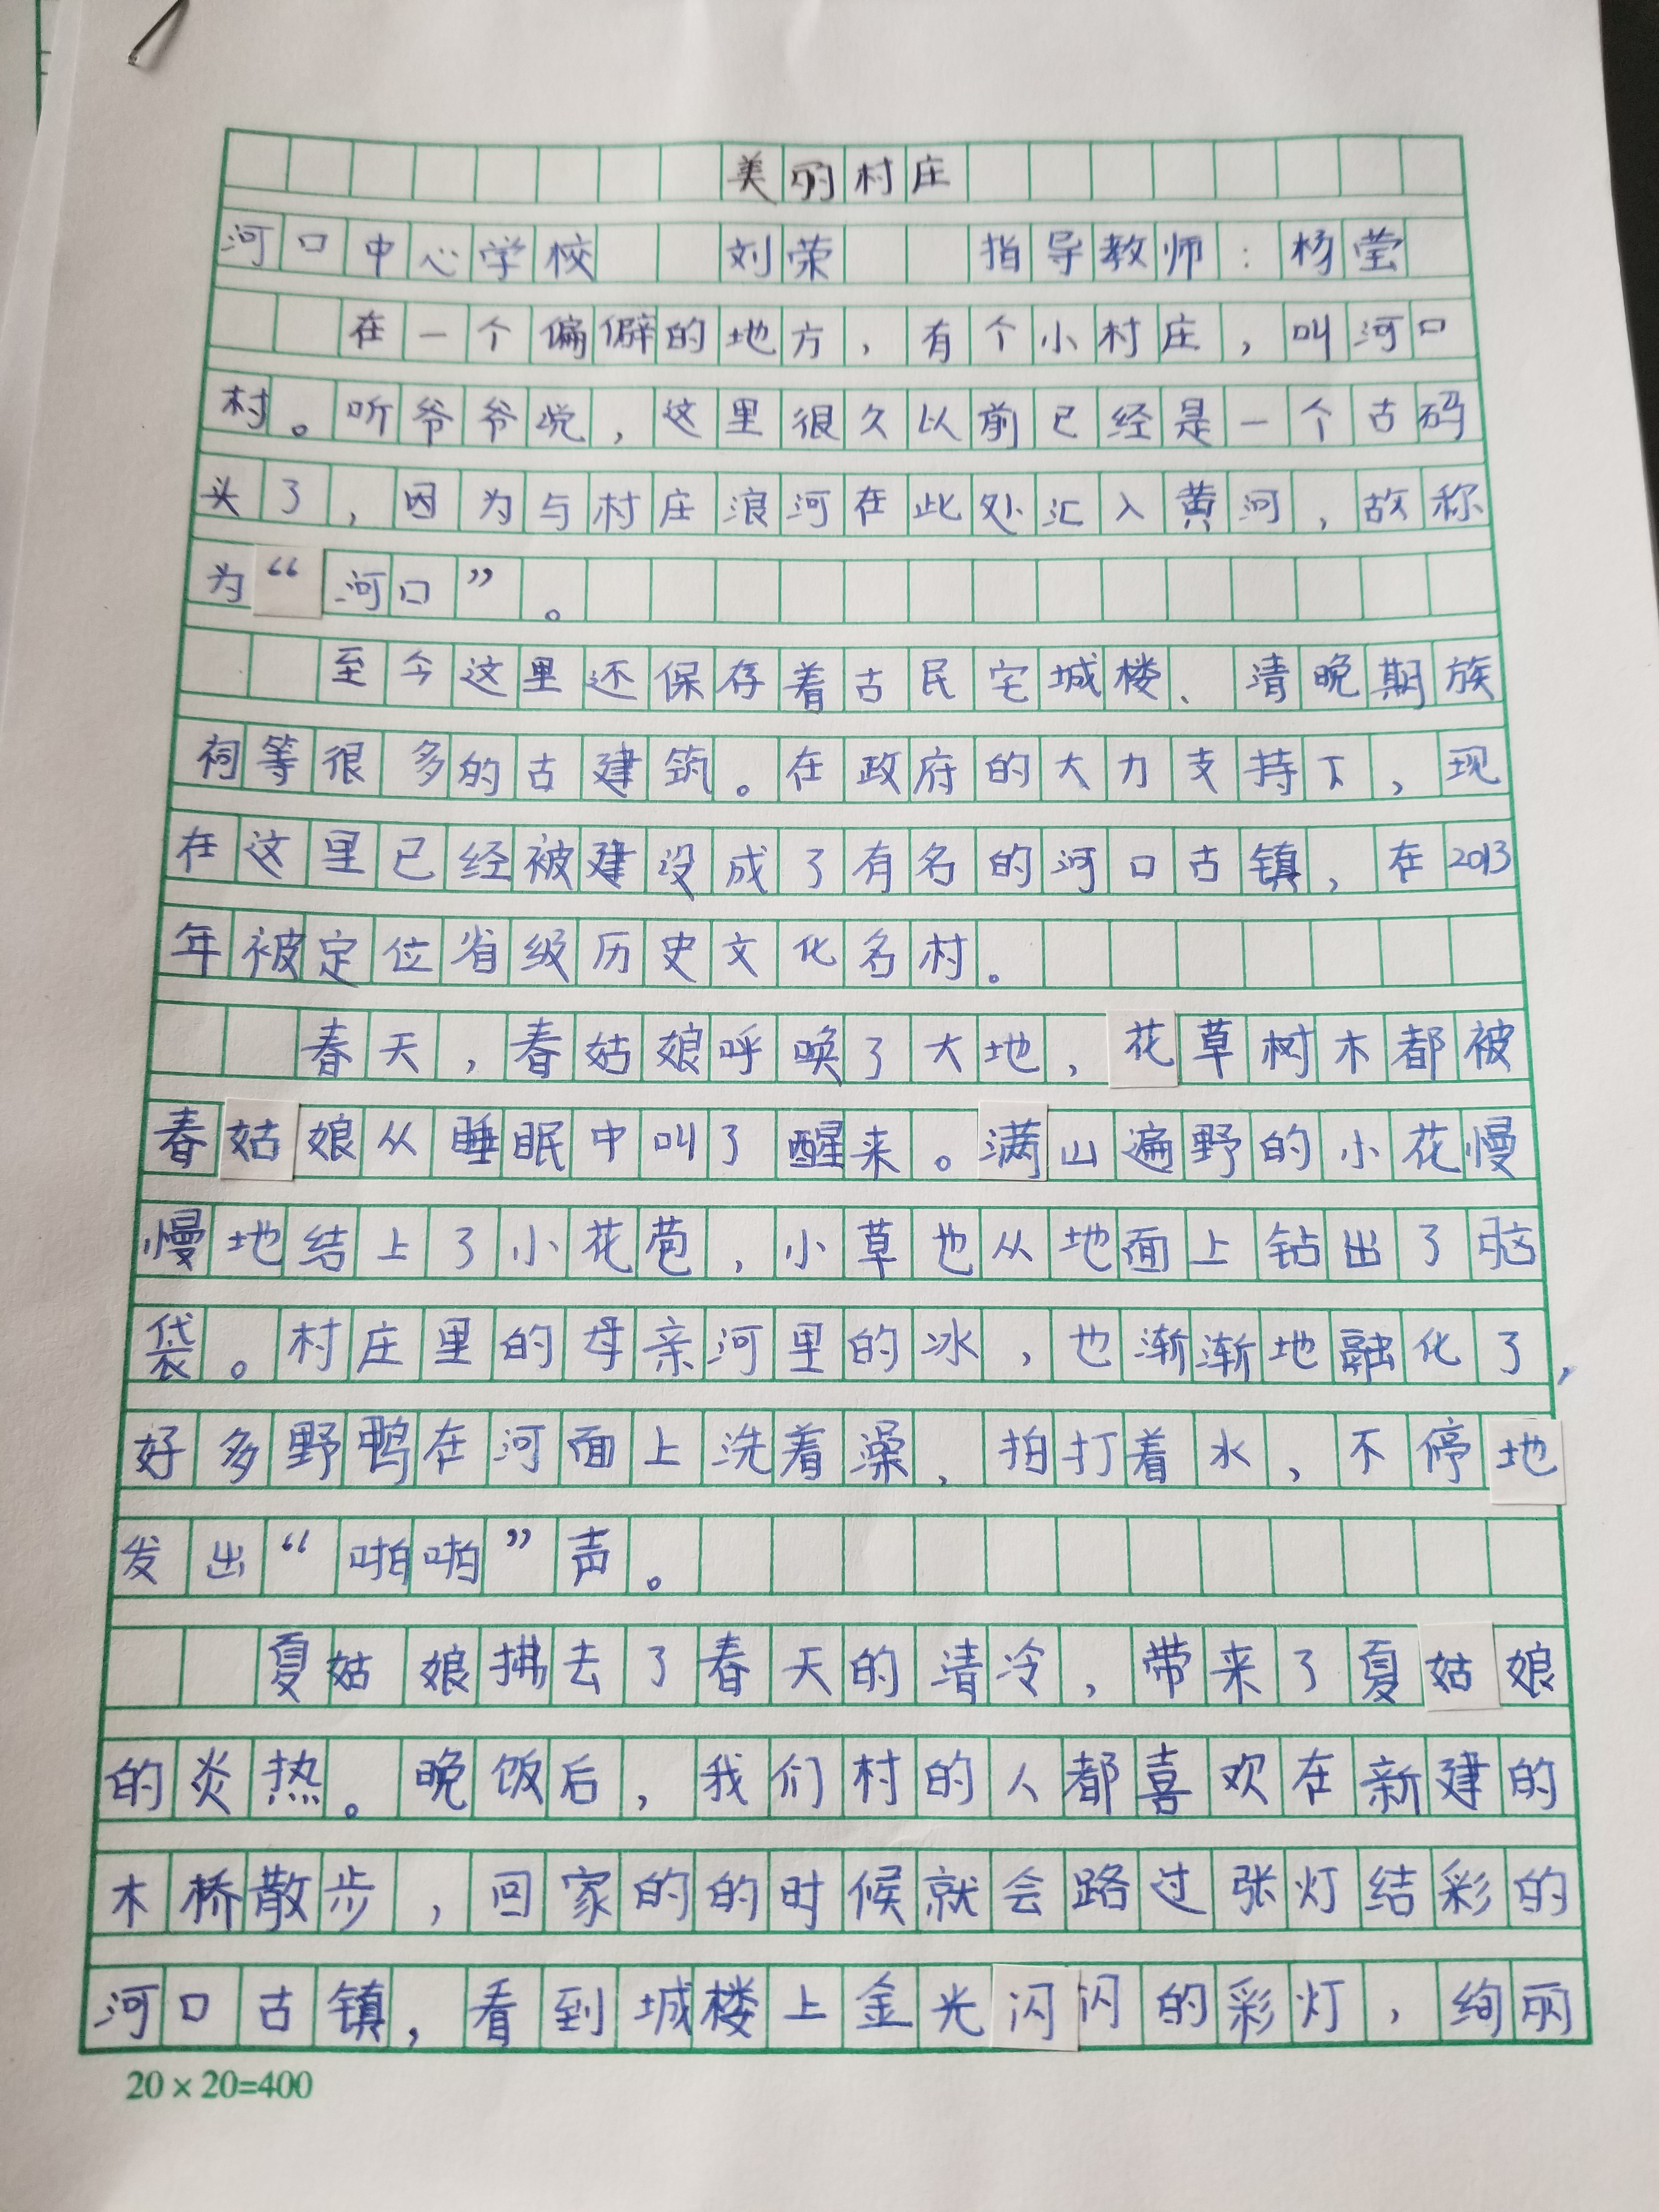 美丽村庄
河口中心学校 刘荣 指导教师:杨莹
在一个偏僻的地方,有个小村庄,叫河口
村。听爷爷说,这里很久以前已经是一个古码
头了,因为与村庄浪河在此处汇入黄河,故称
为“河口”。
至今这里还保存着古民宅城楼、清晚期族
祠等很多的古建筑。在政府的大力支持下,现
在这里已经被建设成了有名的河口古镇,在2013
年被定位省级历史文化名村。
春天,春姑娘呼唤了大地,花草树木都被
春姑娘从睡眠中叫了醒来。满山遍野的小花慢
慢地结上了小花苞,小草也从地面上钻出了脑
袋。村庄里的母亲河里的冰,也渐渐地融化了,
好多野鸭在河面上洗着澡,拍打着水,不停地
发出“啪啪”声。
夏姑娘拂去了春天的清冷,带来了夏姑娘
的炎热。晚饭后,我们村的人都喜欢在新建的
木桥散步,回家的的时候就会路过张灯结彩的
河口古镇,看到城楼上金光闪闪的彩灯,绚丽
20×20=400